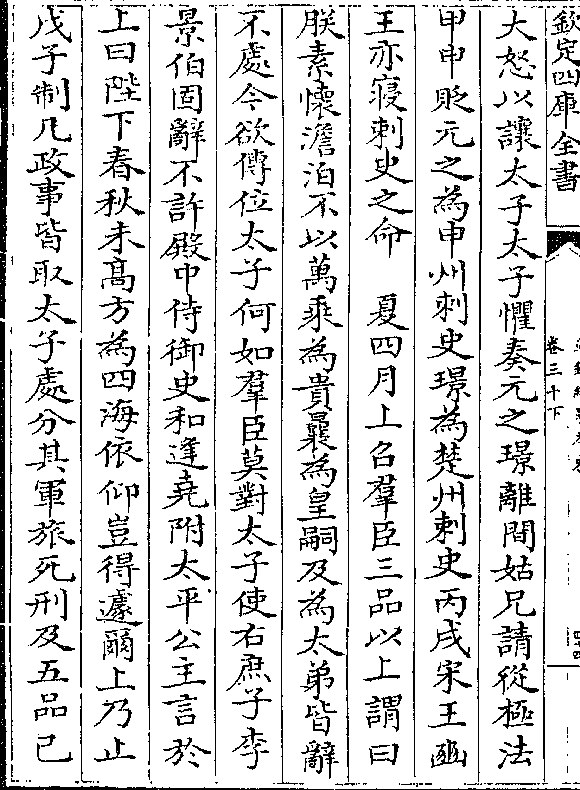 欽定四庫全書
卷三十下
大怒以讓太子太子懼奏元之璟離間姑兄請從極法
甲申貶元之為申州刺史璟為楚州刺史丙戌宋王豳
王亦寢刺史之命　夏四月上召羣臣三品以上謂曰
朕素懷澹泊不以萬乘為貴曩為皇嗣及為太弟皆辭
不處今欲傳位太子何如羣臣莫對太子使右庶子李
景伯固辭不許殿中侍御史和逢堯附太平公主言於
上曰陛下春秋未髙方為四海依仰豈得遽爾上乃止
戊子制凡政事皆取太子處分其軍旅死刑及五品已